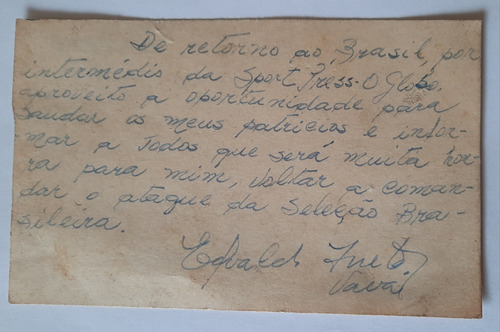 De retorno ao Brasil, por
intermédio da Sport Press-O Globo,
aproveito a oportunidade para
saudar os meus patricios e infor-
mar a todos que será muita hon-
ra para mim, voltar a coman-
dar o ataque da Seleção Bra-
sileira.
Edvaldo Izidio Neto
Vavá